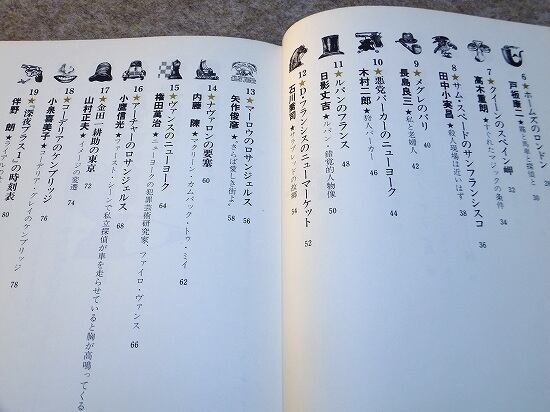 6★ホームズのロンドン 28
戸板康二★霧と馬車と探偵と 30
7★クイーンのスペイン岬 32
高木重朗★すぐれたマジックの条件 34
8★サム・スペードのサンフランシスコ 36
田中小実昌★殺人現場は近いはず 38
9★メグレのパリ 40
長島良三★私と老婦人 42
10★悪党パーカーのニューヨーク 44
木村二郎★狩人パーカー 46
11★ルパンのフランス 48
日影丈吉★ルパン・錯覚的人物像 50
12★D・フランシスのニューマーケット 52
石川喬司★サラブレッドの故郷 54
13★マーロウのロサンジェルス 56
矢作俊彦★"さらば愛しき街よ" 58
14★ナヴァロンの要塞 60
内藤 陳★マクリーン・カムバック・トゥ・ミイ 62
15★ヴァンスのニューヨーク 64
権田萬治★ニューヨークの犯罪芸術研究家、ファイロ・ヴァンス 66
16★アーチャーのロサンジェルス 68
小鷹信光★ファースト・シーンで私立探偵が車を走らせていると胸が高鳴ってくる
17★金田一耕助の東京 72
山村正夫★イメージの変遷 74
18★コーデリアのケンブリッジ 76
小泉喜美子★コーデリア・グレイのケンブリッジ 78
19★"深夜プラス1"の時刻表 80
伴野 朗★ライアルの